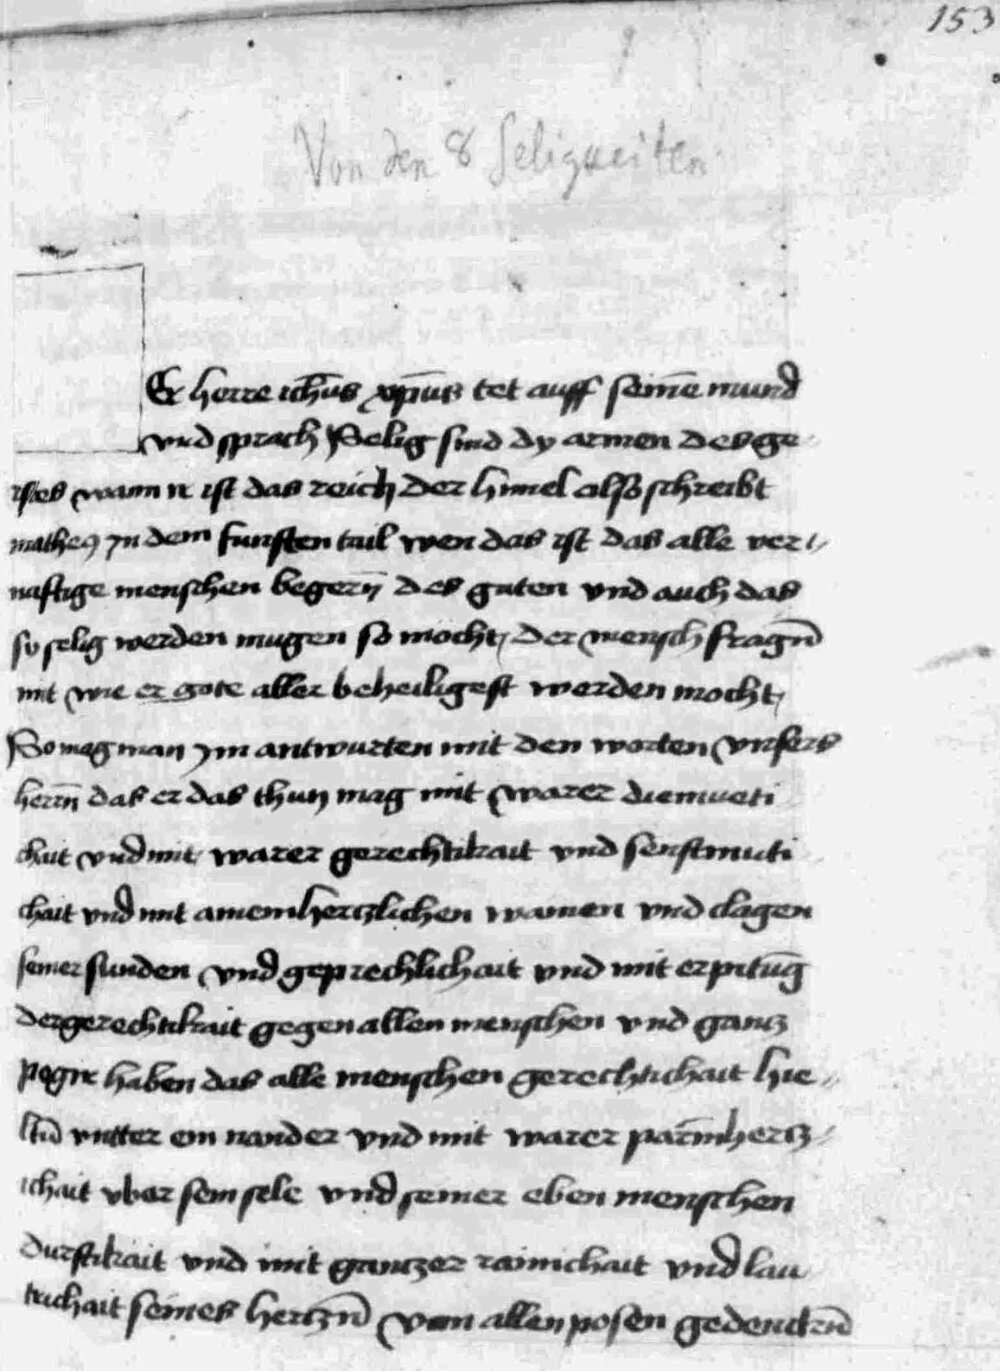 153
Von den 8 Seligkeiten
Er herre ih̄us xp̄us tet auff seinē mund
vnd sprach Selig sind dy armen des ge
istes wann ir ist das reich der himel also schreibt
matheꝯ yn dem funften tail wen das ist das alle ver
nuftige menschen begern̄ des guten vnd auch das
sy selig werden mugen so mocht der mensch fragn̄
mit wie er gote aller beheiligest werden mocht
So mag man ym antwurten mit den worten vnsers
herrn̄ das er das thun mag mit warer diemueti
chait vnd mit warer gerechtikait vnd senftmuti
chait vnd mit ainem hertzlichen wainen vnd clagen
seiner sunden vnd geprechlichait vnd mit erpitūg
der gerechtikait gegen allen menschen vnd gantz
pogir haben das alle menschen gerechtichait hie
ltn̄ vntter ein nander vnd mit warer parm̄hertz
ichait vber sein sele vnd seiner eben menschen
durftikait vnd mit gantzer rainichait vnd lau
trichait seines hertzn̄ von allen posen gedenckn̄